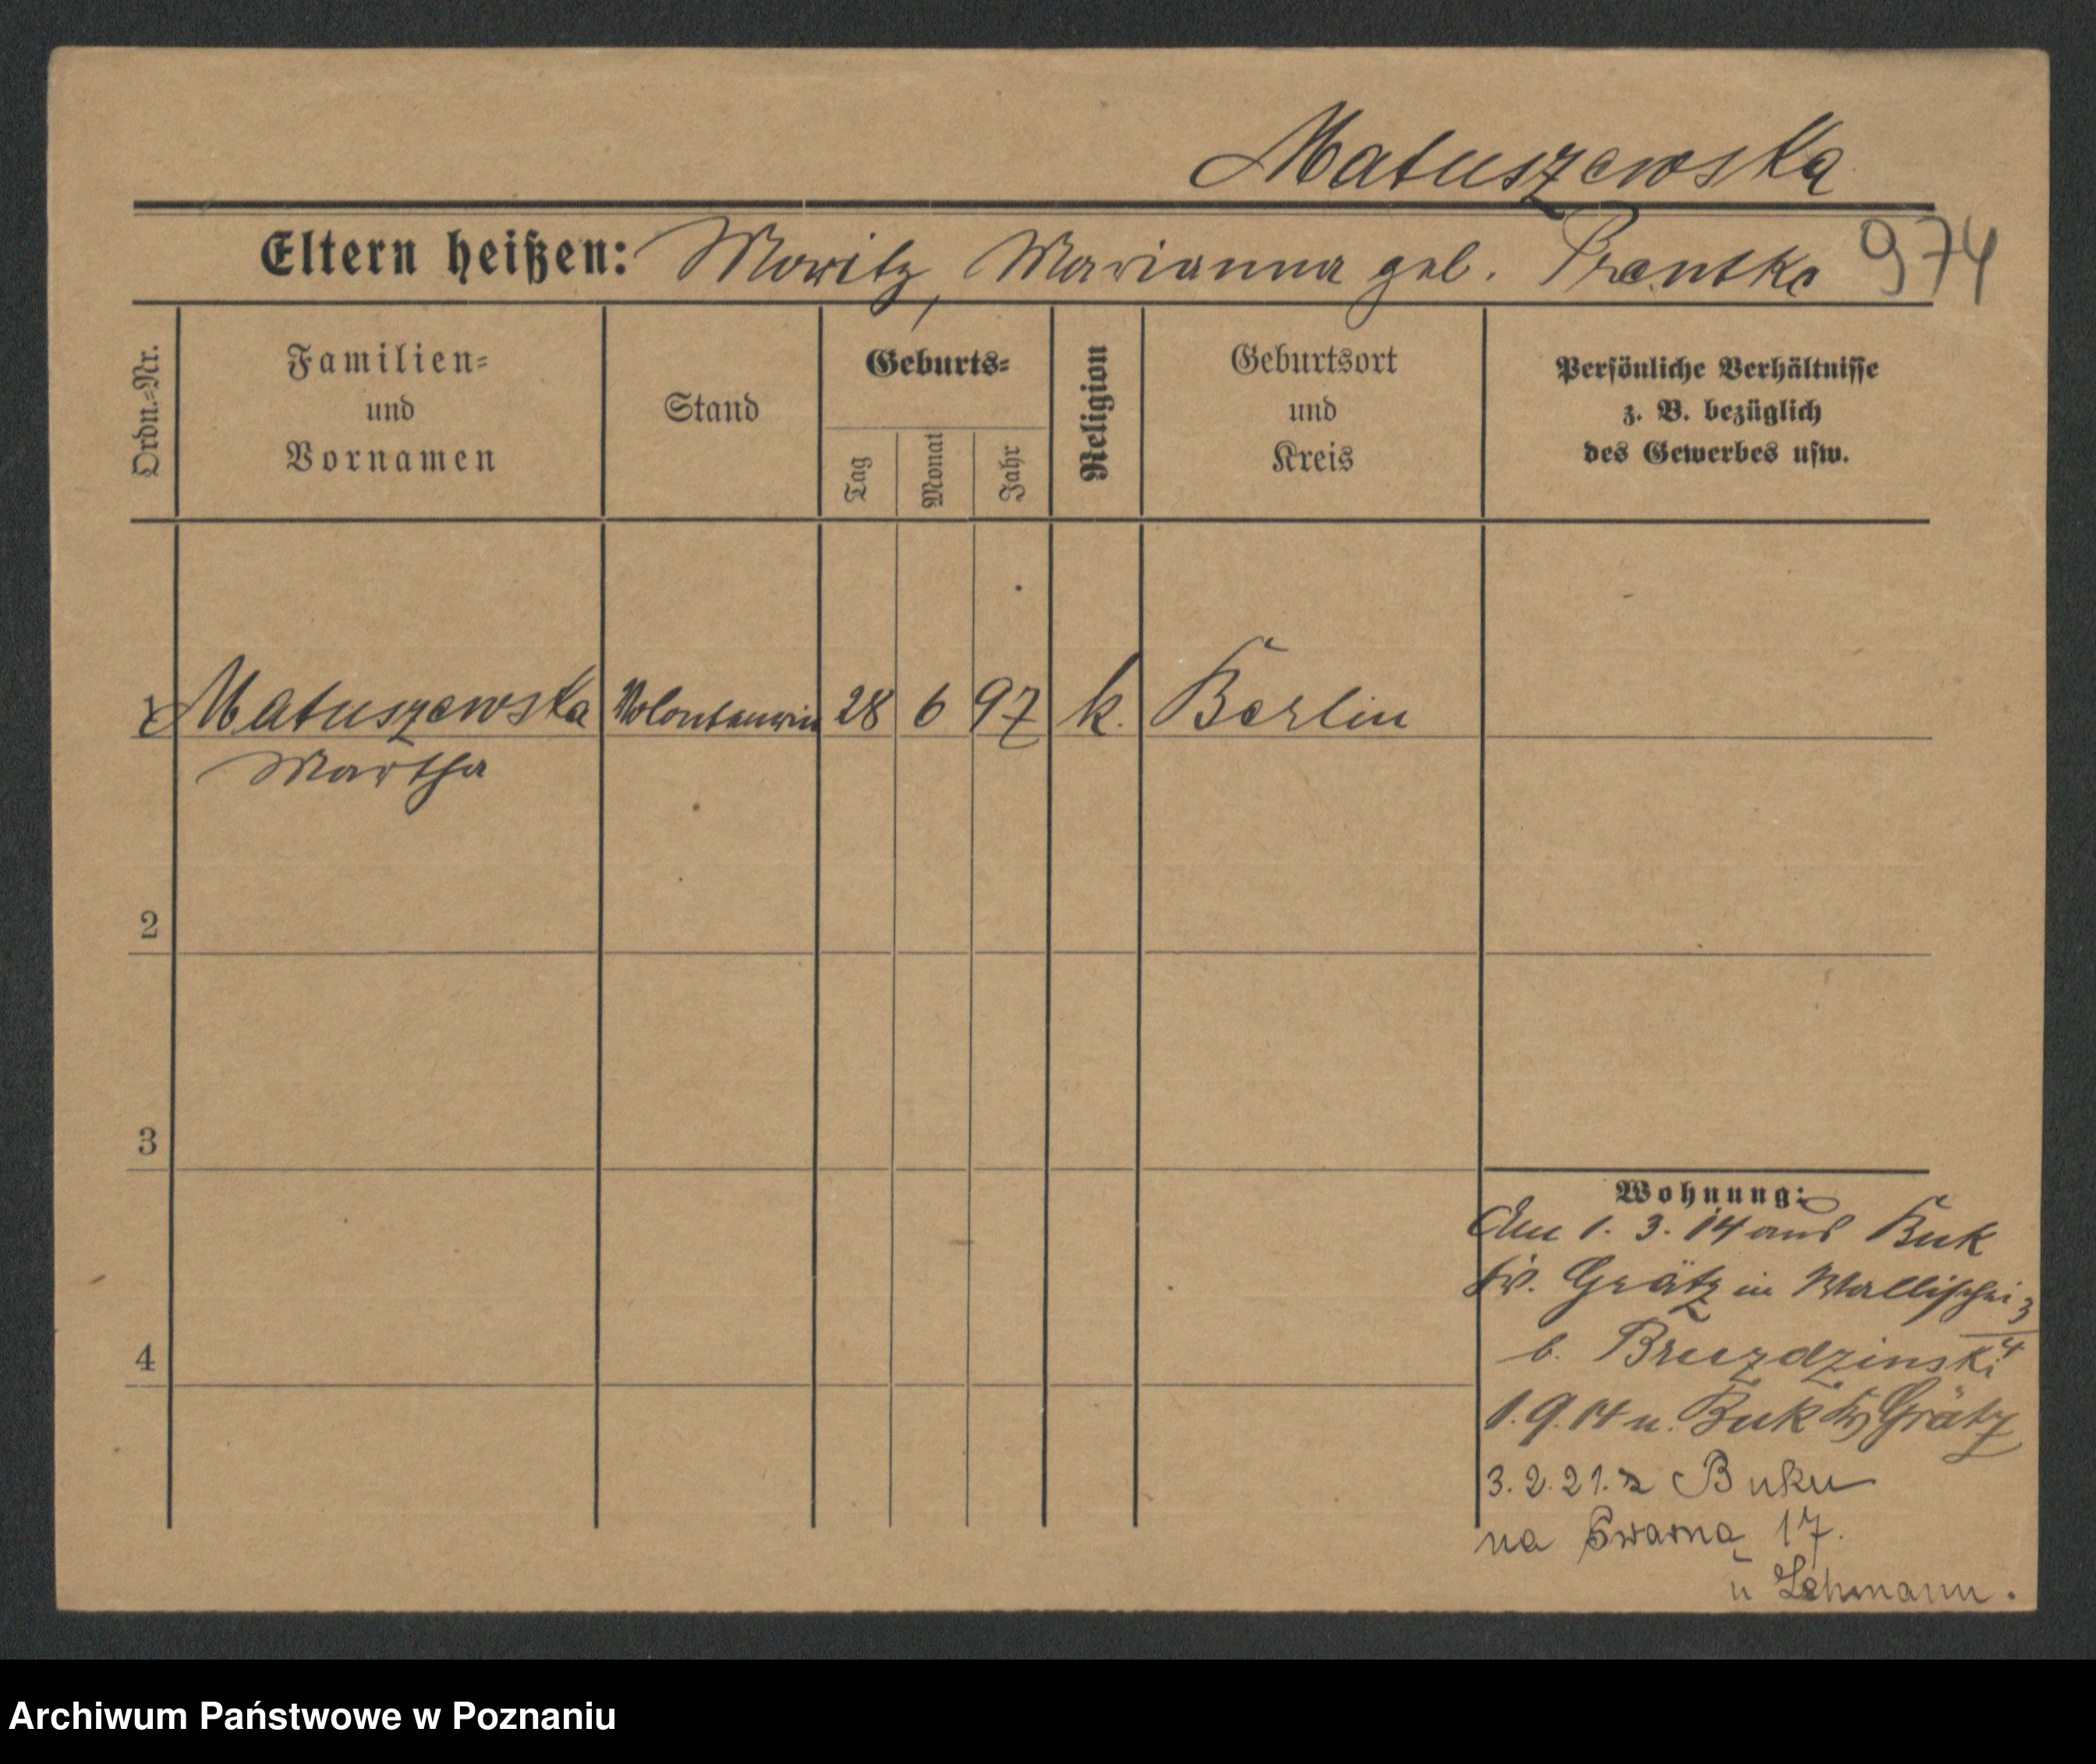 Matuszewska
Eltern heißen: Moritz, Marianna geb. Prantke
974
Ordn.-Nr.
Familien-
und
Vornamen
Stand
Geburts-
Tag
Monat
Jahr
Religion
Geburtsort
und
Kreis
Persönliche Verhältnisse
z. B. bezüglich
des Gewerbes usw.
1 Matuszewska Volontärin 28 6 97 k. Berlin
Martha
2
3
4
Wohnung:
Am 1. 3. 14 aus Buk
Kr. Grätz in Wallischei 3/4
b. Bruzdzinski
1. 9. 14 n. Buk Kr Grätz
3. 2. 21. z Buku
na 17.
u Lehmann.
Archiwum Państwowe w Poznaniu